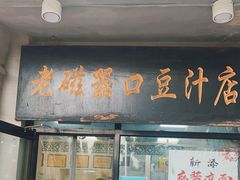 老磁器口豆汁店
新添